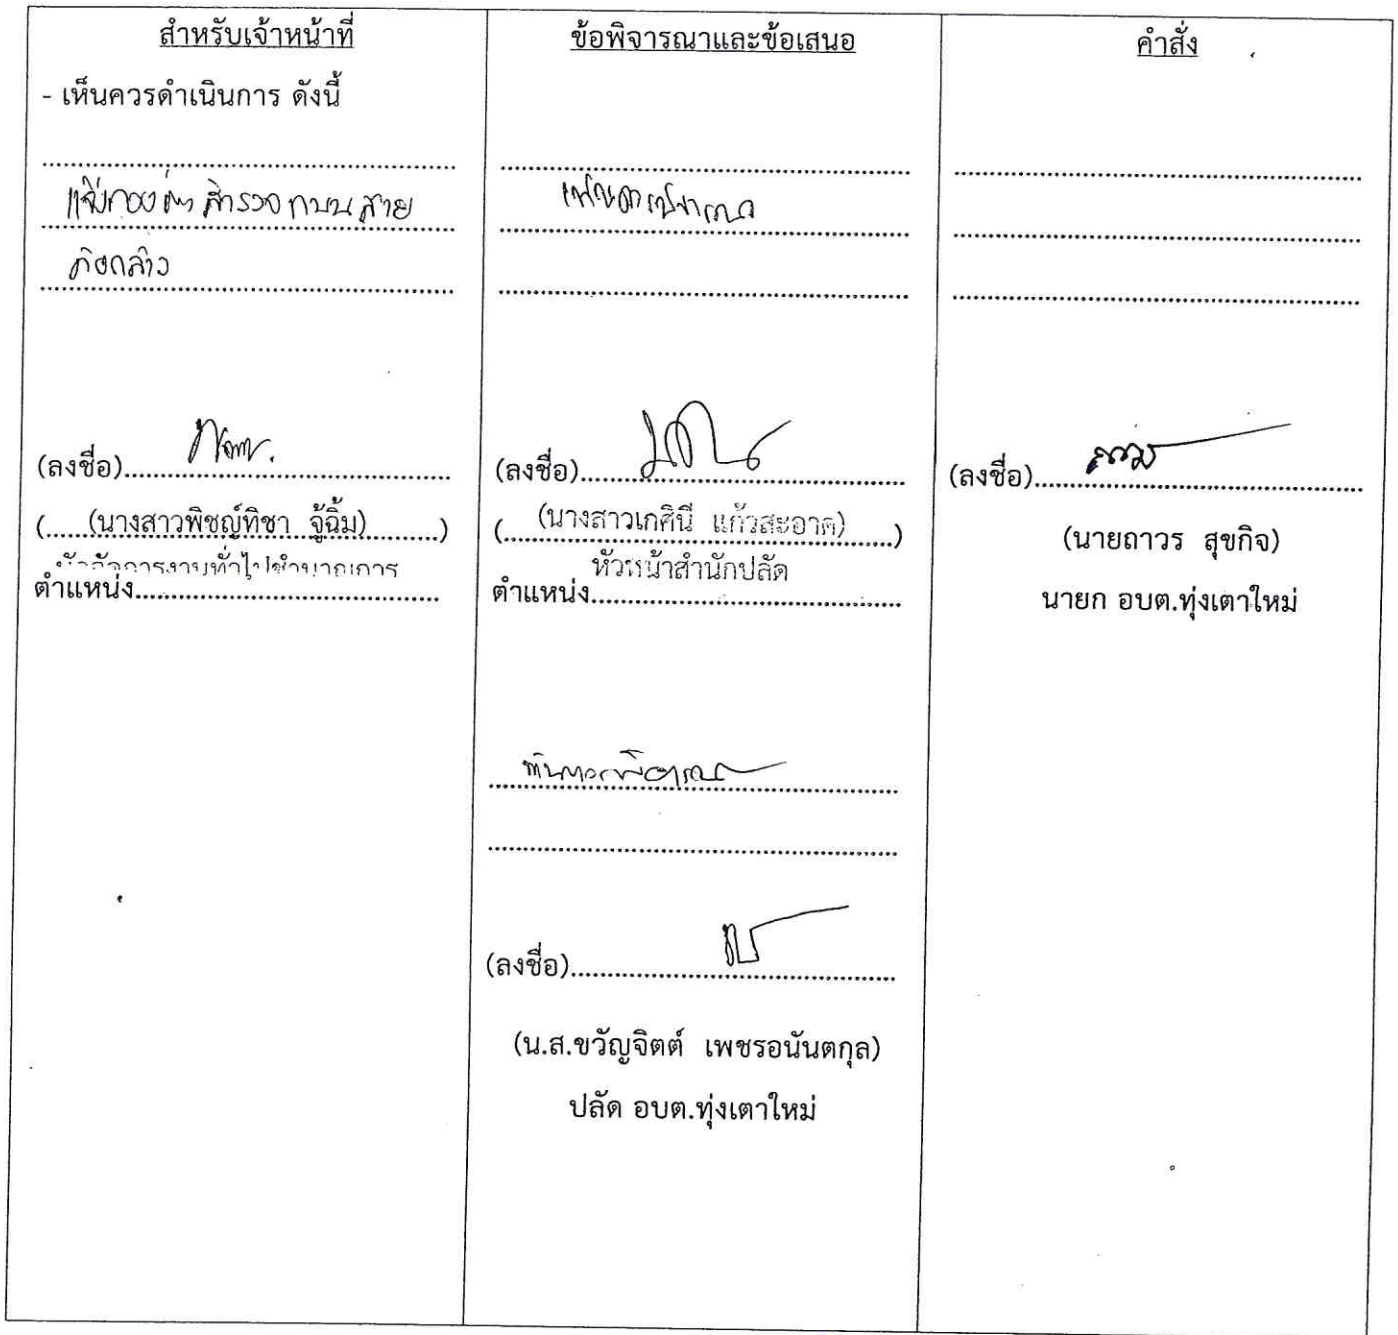 สำหรับเจ้าหน้าที่
- เห็นควรดำเนินการ ดังนี้
แจ้งกองช่าง สำรวจ ถนน สาย
ดังกล่าว
(ลงชื่อ)
(นางสาวพิชญ์ทิชา จู้ฉิ้ม)
นักจัดการงานทั่วไปชำนาญการ
ตำแหน่ง
ข้อพิจารณาและข้อเสนอ
(ลงชื่อ)
(นางสาวเกศินี แก้วสะอาด)
หัวหน้าสำนักปลัด
ตำแหน่ง
(ลงชื่อ)
(น.ส.ขวัญจิตต์ เพชรอนันตกุล)
ปลัด อบต.ทุ่งเตาใหม่
คำสั่ง
(ลงชื่อ)
(นายถาวร สุขกิจ)
นายก อบต.ทุ่งเตาใหม่